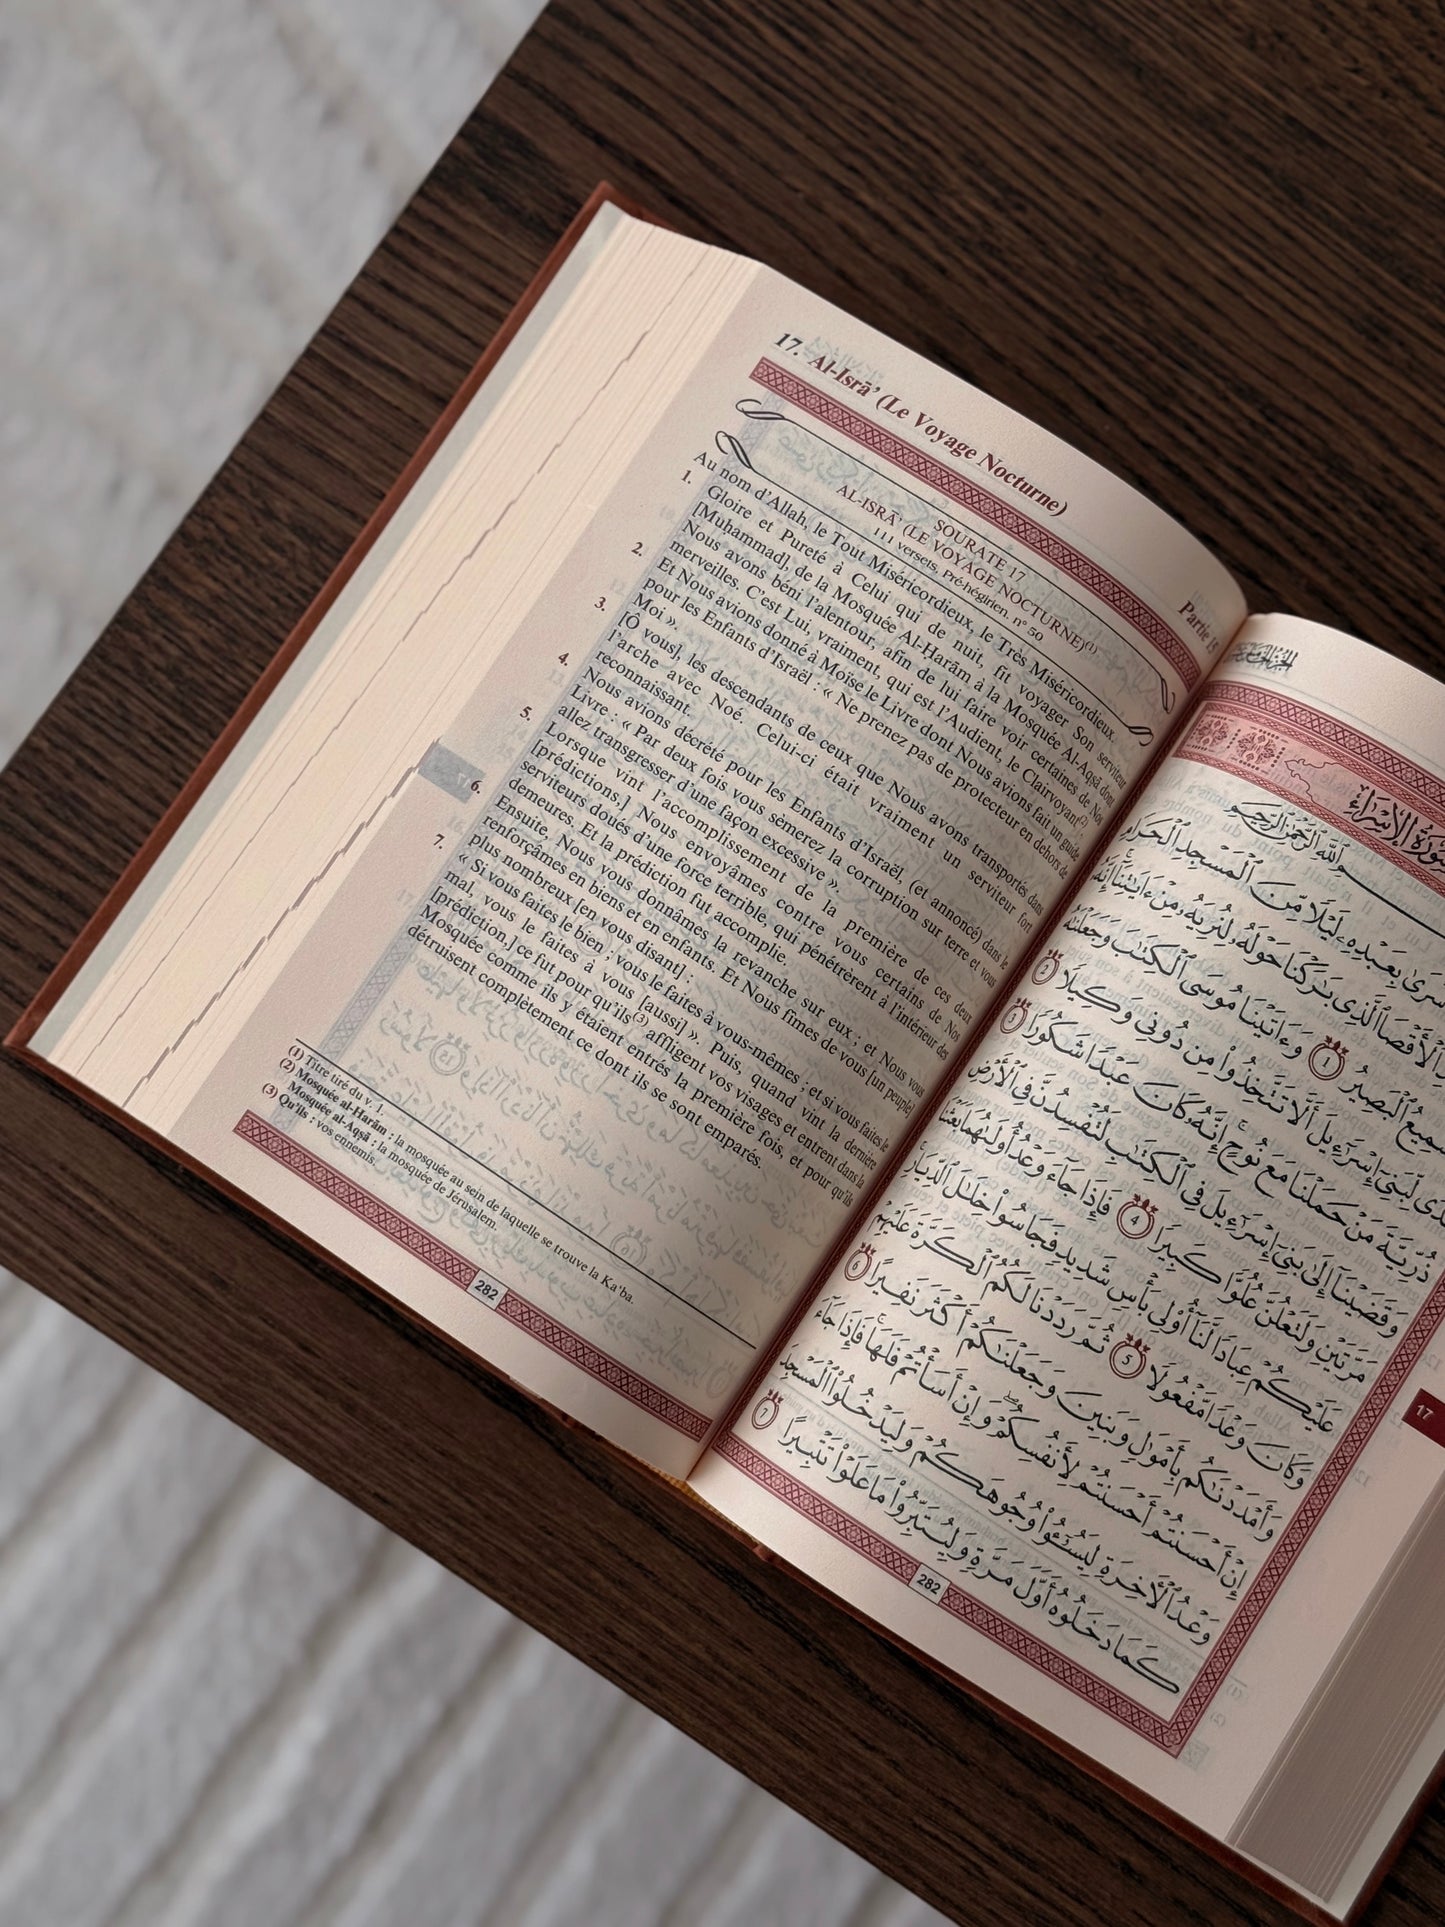 17. Al-Isrā' (Le Voyage Nocturne)
Partie 15
SOURATE 17
AL-ISRĀ' (LE VOYAGE NOCTURNE)(1)
111 versets, Pré-hégirien, n° 50
Au nom d'Allah, le Tout Miséricordieux, le Très Miséricordieux.
1. Gloire et Pureté à Celui qui de nuit, fit voyager Son serviteur
[Muḥammad], de la Mosquée Al-Ḥarām à la Mosquée Al-Aqṣā dont
Nous avons béni l'alentour, afin de lui faire voir certaines de Nos
merveilles. C'est Lui, vraiment, qui est l'Audient, le Clairvoyant(2).
2. Et Nous avions donné à Moïse le Livre dont Nous avions fait un guide
pour les Enfants d'Israël : « Ne prenez pas de protecteur en dehors de
Moi ».
3. [Ô vous], les descendants de ceux que Nous avons transportés dans
l'arche avec Noé. Celui-ci était vraiment un serviteur fort
reconnaissant.
4. Nous avions décrété pour les Enfants d'Israël, (et annoncé) dans le
Livre : « Par deux fois vous sèmerez la corruption sur terre et vous
allez transgresser d'une façon excessive ».
5. Lorsque vint l'accomplissement de la première de ces deux
[prédictions,] Nous envoyâmes contre vous certains de Nos
serviteurs doués d'une force terrible, qui pénétrèrent à l'intérieur des
demeures. Et la prédiction fut accomplie.
6. Ensuite, Nous vous donnâmes la revanche sur eux ; et Nous vous
renforçâmes en biens et en enfants. Et Nous fîmes de vous [un peuple]
plus nombreux [en vous disant] :
7. « Si vous faites le bien ; vous le faites à vous-mêmes ; et si vous faites le
mal, vous le faites à vous [aussi] ». Puis, quand vint la dernière
[prédiction,] ce fut pour qu'ils(3) affligent vos visages et entrent dans la
Mosquée comme ils y étaient entrés la première fois, et pour qu'ils
détruisent complètement ce dont ils se sont emparés.
(1) Titre tiré du v. 1.
(2) Mosquée al-Harâm : la mosquée au sein de laquelle se trouve la Ka'ba.
Mosquée al-Aqṣā : la mosquée de Jérusalem.
(3) Qu'ils : vos ennemis.
282
سُورَةُ الإِسْرَاءِ
ٱللَّهِ ٱلرَّحْمَٰنِ ٱلرَّحِيمِ
أَسْرَىٰ بِعَبْدِهِۦ لَيْلًا مِّنَ ٱلْمَسْجِدِ ٱلْحَرَامِ
ٱلْأَقْصَا ٱلَّذِى بَٰرَكْنَا حَوْلَهُۥ لِنُرِيَهُۥ مِنْ ءَايَٰتِنَآ إِنَّهُۥ
ٱلسَّمِيعُ ٱلْبَصِيرُ 1 وَءَاتَيْنَا مُوسَى ٱلْكِتَٰبَ وَجَعَلْنَٰهُ
هُدًى لِّبَنِىٓ إِسْرَٰٓءِيلَ أَلَّا تَتَّخِذُوا۟ مِن دُونِى وَكِيلًا 2
ذُرِّيَّةَ مَنْ حَمَلْنَا مَعَ نُوحٍ إِنَّهُۥ كَانَ عَبْدًا شَكُورًا 3
وَقَضَيْنَآ إِلَىٰ بَنِىٓ إِسْرَٰٓءِيلَ فِى ٱلْكِتَٰبِ لَتُفْسِدُنَّ فِى ٱلْأَرْضِ
مَرَّتَيْنِ وَلَتَعْلُنَّ عُلُوًّا كَبِيرًا 4 فَإِذَا جَآءَ وَعْدُ أُولَىٰهُمَا بَعَثْنَا
عَلَيْكُمْ عِبَادًا لَّنَآ أُو۟لِى بَأْسٍ شَدِيدٍ فَجَاسُوا۟ خِلَٰلَ ٱلدِّيَارِ
وَكَانَ وَعْدًا مَّفْعُولًا 5 ثُمَّ رَدَدْنَا لَكُمُ ٱلْكَرَّةَ عَلَيْهِمْ
وَأَمْدَدْنَٰكُم بِأَمْوَٰلٍ وَبَنِينَ وَجَعَلْنَٰكُمْ أَكْثَرَ نَفِيرًا 6
إِنْ أَحْسَنتُمْ أَحْسَنتُمْ لِأَنفُسِكُمْ وَإِنْ أَسَأْتُمْ فَلَهَا فَإِذَا جَآءَ
وَعْدُ ٱلْءَاخِرَةِ لِيَسُۥٓـُٔوا۟ وُجُوهَكُمْ وَلِيَدْخُلُوا۟ ٱلْمَسْجِدَ
كَمَا دَخَلُوهُ أَوَّلَ مَرَّةٍ وَلِيُتَبِّرُوا۟ مَا عَلَوْا۟ تَتْبِيرًا 7
17
282